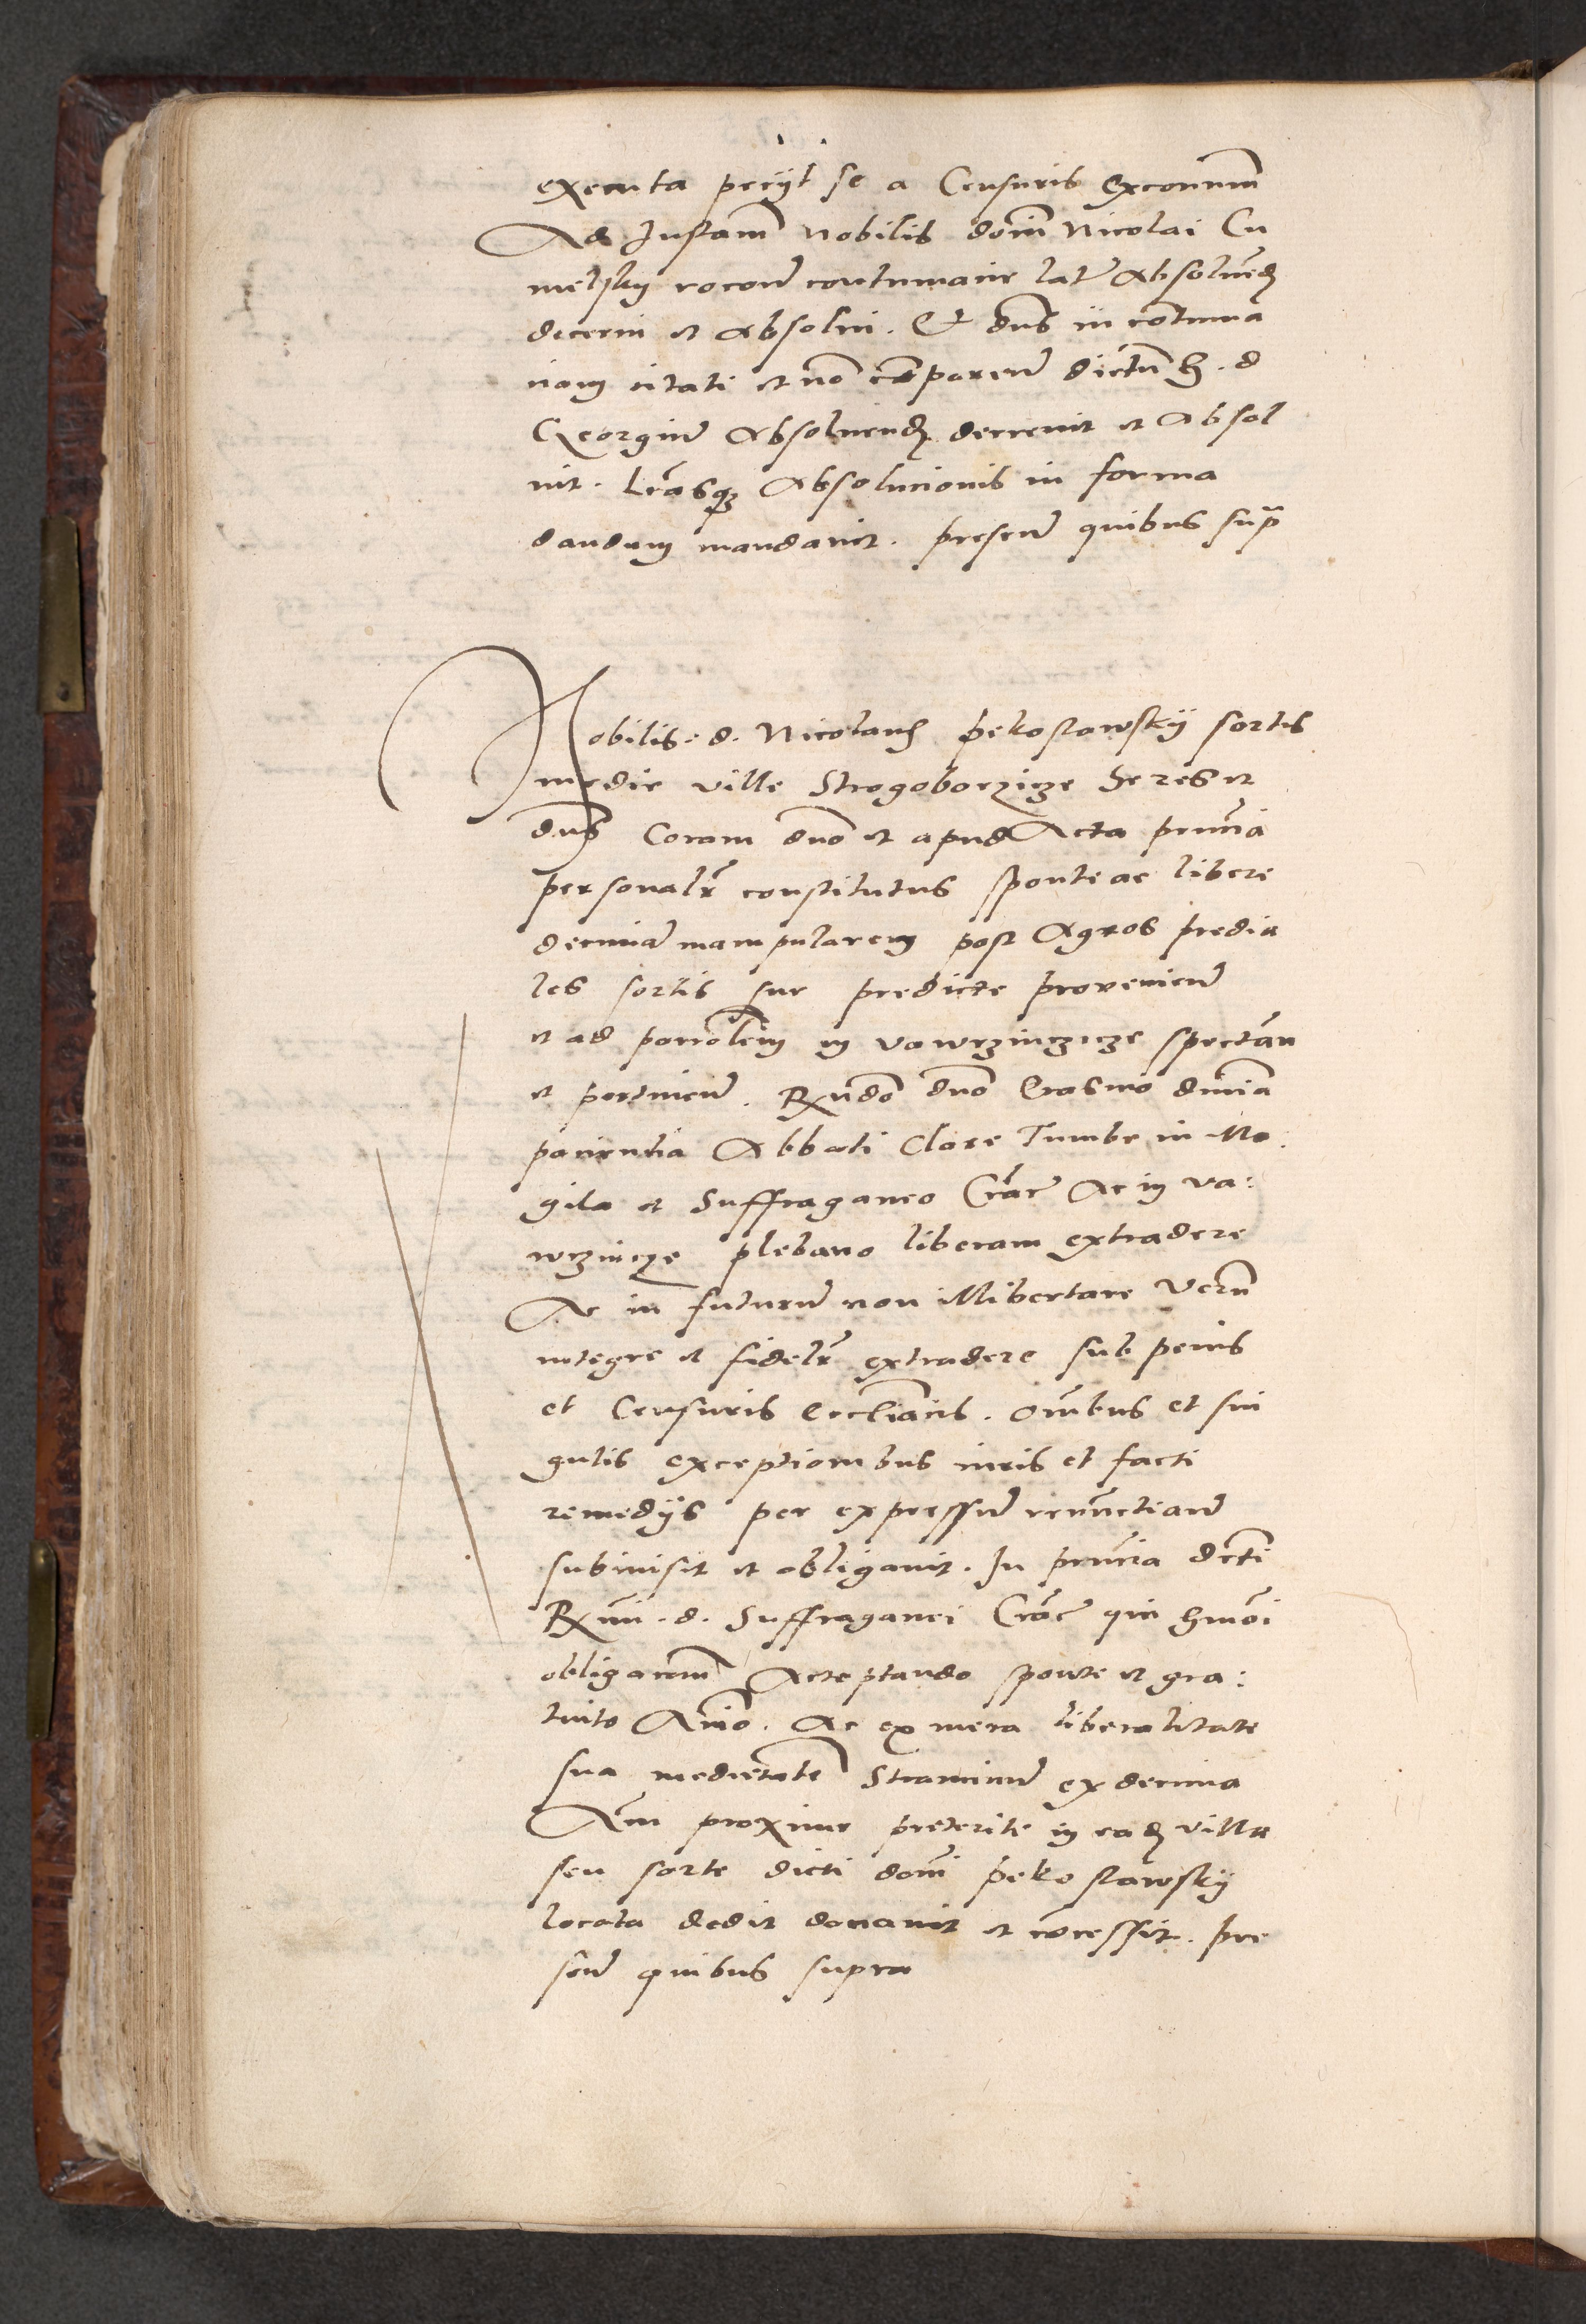 executa peciit se a Censuris excomm
Ad Instam nobilis domi Nicolai Cu
melsky rocom contumacie late absoluend
decerni et absolui. Et dns in contuma
ciam citati et non comparen dictum h. d
Georgium absoluendum decreuit et absol
uit. Lrasque absolucionis in forma
dandam mandauit. presen quibus supra
Nobilis. d. Nicolaus pekoslawskij sortis
medie ville Strogoborzicze heres et
dns Coram dno et apud Acta prntia
personalr constitutus sponte ac libere
decimam manipularem post Agros predia
les sortis sue predicte prouenien
et ad parrolem in vawrzinczicze spectan
et pertinen. Rndo dno Erasmo diuina
pacientia Abbati Clare Tumbe in Mo
gila et Suffraganeo Crac Ac in va:
wrzincze plebano liberam extradere
Ac in futurum non illibertare Verum
integre et fidelr extradere sub penis
et Censuris Eccliacis. omibus et sin
gulis exceptionibus iuris et facti
remediis per expressum renunctiam
subiuisit et obligauit. In prntia dicti
Rmi. d. Suffraganei Crac qui hmoi
obligacom Acceptando sponte et gra:
tuito Animo. Ac ex mera liberalitate
sua medietatem Straminum ex decima
Anni proxime preterite in eadem villa
seu sorte dicti domi pekoslawskij
locata dedit donauit et concessit. pre
sen quibus supra